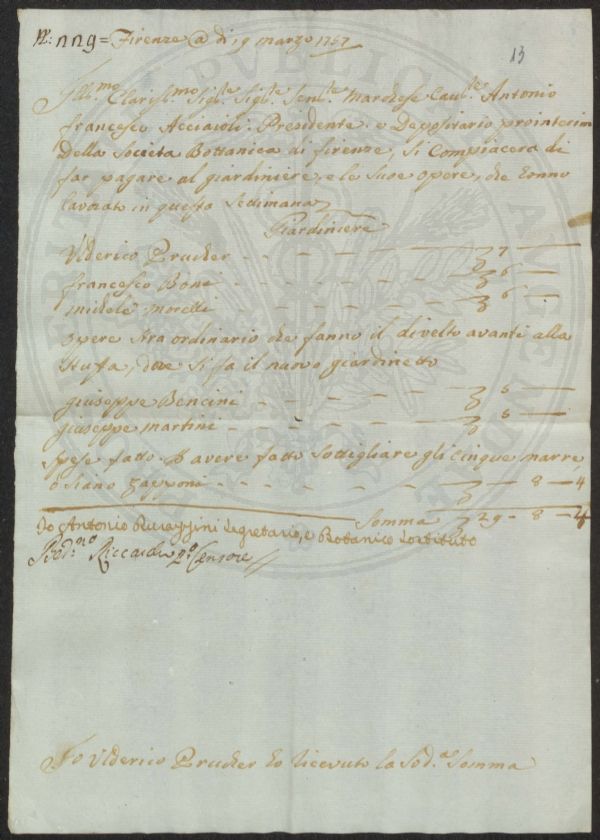 N.: 229 = Firenze @ di 19 marzo 1757
13
Ill.mo Clariss.mo Sig.re Sig.re Sen.re Marchese Cav.re Antonio
francesco Acciaioli. Presidente. e Depositario prointerim
Della Società Bottanica di firenze, si Compiacerà di
far pagare al giardiniere, e le Sue opere, che hanno
lavorato in questa Settimana
Giardiniere
Vlderico Prucker - - - - - 7 -
francesco Boni - - - - - - 6 -
michele morelli - - - - - 6 -
Opere straordinario che fanno il divelto avanti alla
stufa, dove si fa il nuovo giardinetto
giuseppe Bencini - - - - - 5 -
giuseppe martini - - - - - 5 -
Spese fatto. P avere fatto sottigliare gli cinque marre,
o siano zapponi - - - - - - - 8 - 4
Somma 29 - 8 - 4
Io Antonio Segretario, e Botanico Sostituto
Riccardi 2.o Censore
Io Vlderico Prucker ho ricevuto la Sod.a Somma